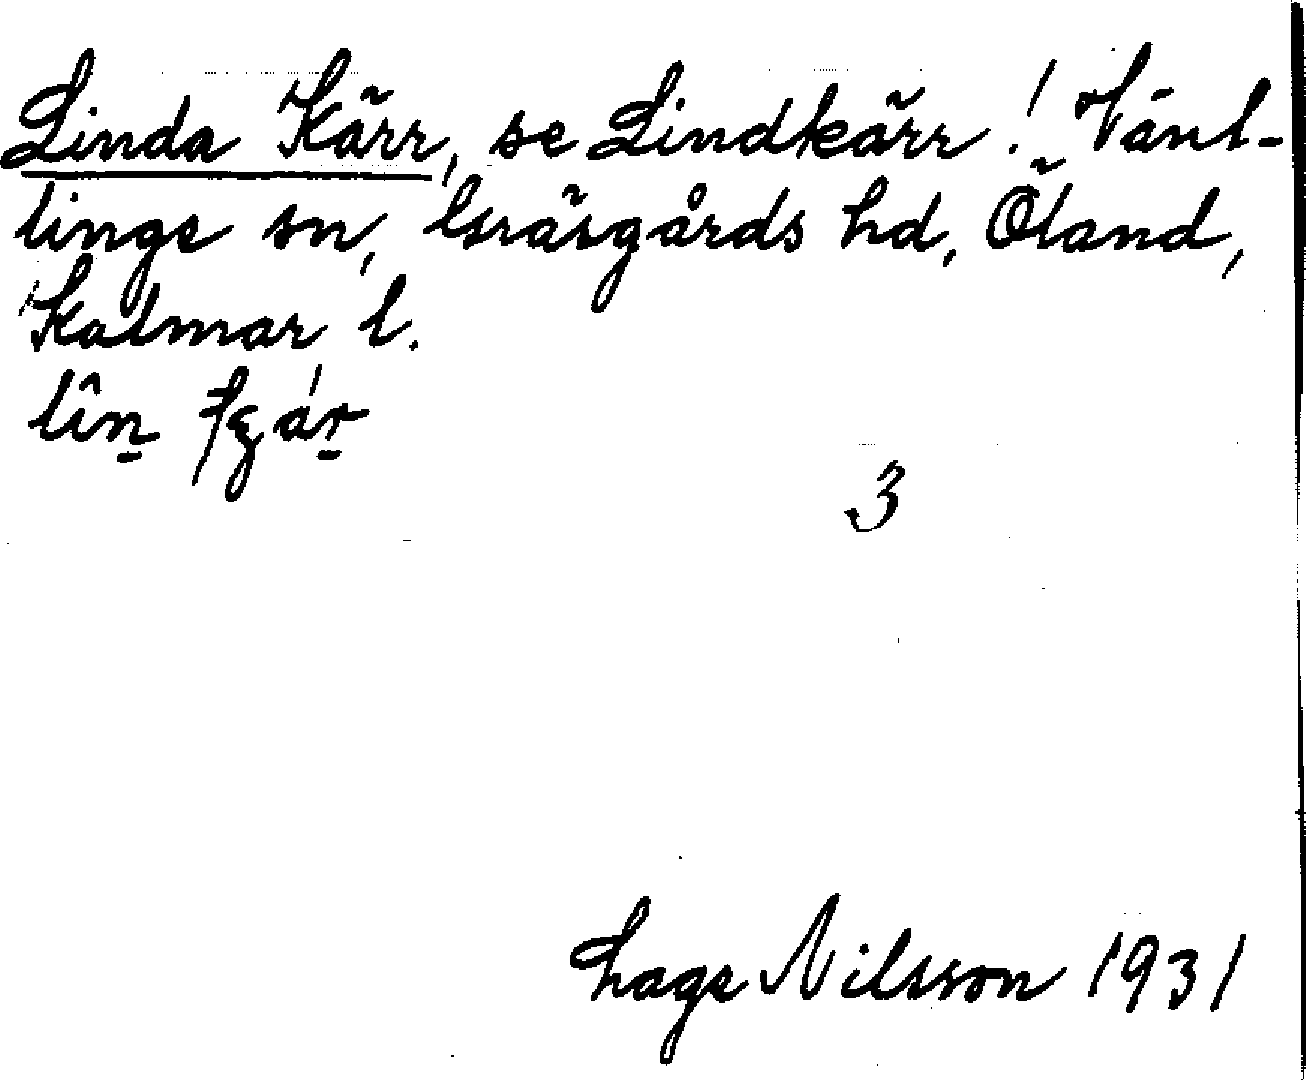 Linda Kärr, se Lindkärr! Vänt-
linge sn, Gräsgårds hd, Öland,
Kalmar l.
lîn
3
Hage Nilsson 1931